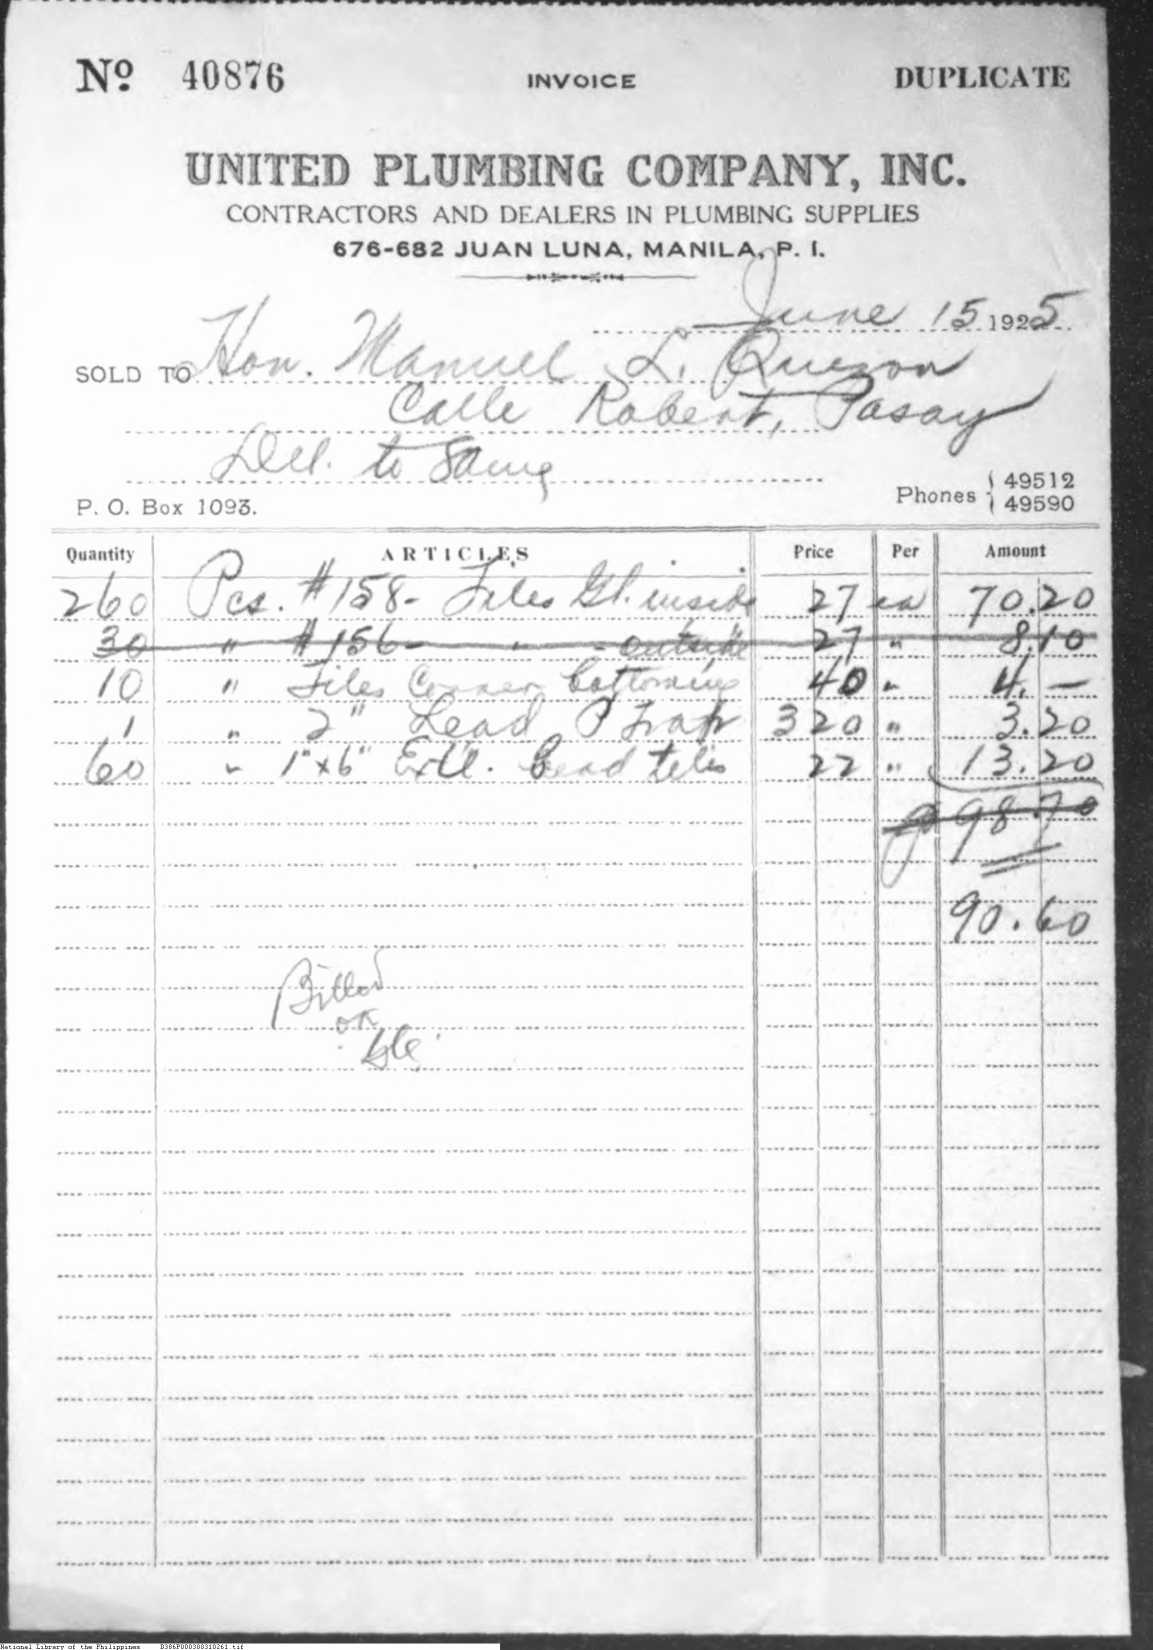 Nº 40876 INVOICE DUPLICATE
UNITED PLUMBING COMPANY, INC.
CONTRACTORS AND DEALERS IN PLUMBING SUPPLIES
676-682 JUAN LUNA, MANILA, P. I.
June 15 1925
SOLD TO Hon. Manuel L. Quezon
Calle Robert, Pasay
Del. to Same
P. O. Box 1093. Phones { 49512
49590
Quantity ARTICLES Price Per Amount
260 Pcs. #158- Tiles Gl. inside 27 ea 70.20
30 " #156- " - outside 27 " 8.10
10 " Tiles Corner bottoming 40 " 4. —
1 " 2" Lead P Trap 3 20 " 3.20
60 " 1" x 6" Bead tiles 22 " 13.20
98.70
90.60
Billed
OK
National Library of the Philippines B386P000300310261.tif